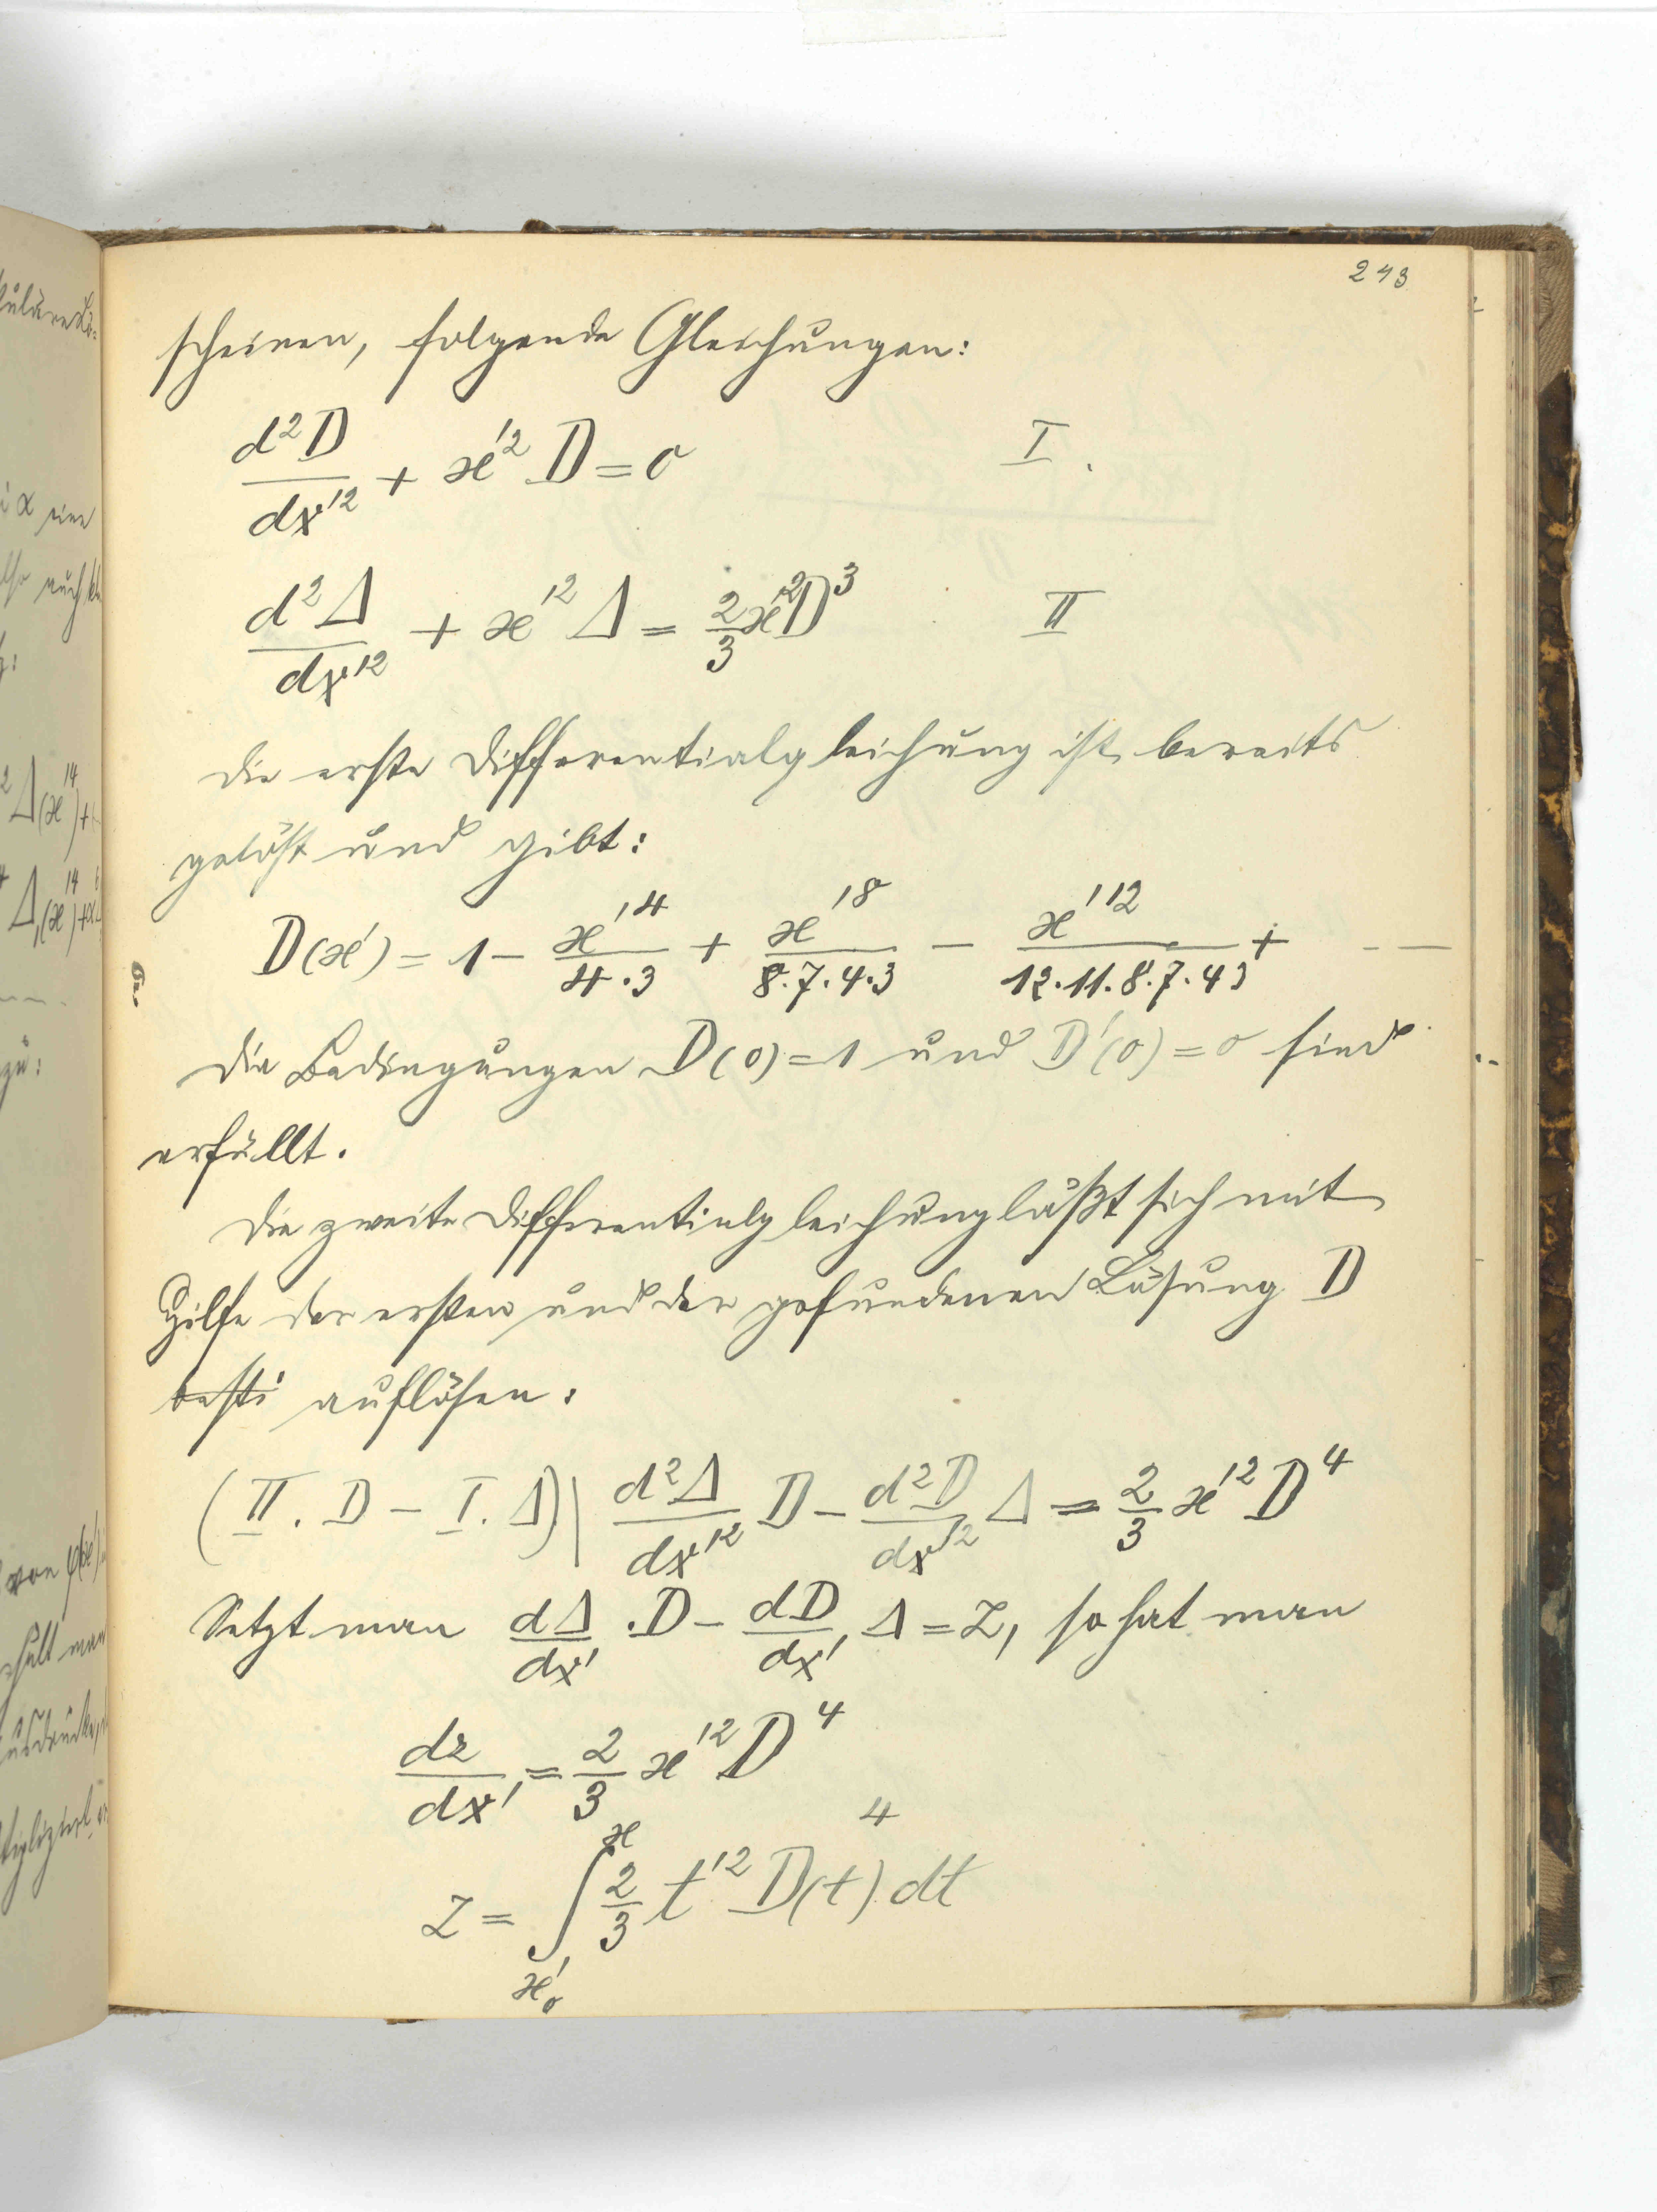 243
scheinen, folgende Gleichungen:
d²D/dx'² + x'² D = 0 I.
d²Δ/dx'² + x'² Δ = 2/3 x'² D³ II
Die erste Differentialgleichung ist bereits
gelöst und gibt:
D(x') = 1 - x'⁴/4·3 + x'⁸/8·7·4·3 - x'¹²/12·11·8·7·4 3 + - -
Die Bedingungen D(0)=1 und D'(0)=0 sind
erfüllt.
Die zweite Differentialgleichung läßt sich mit
Hilfe der ersten und der gefundenen Lösung D
besti auflösen:
(II. D - I. Δ)| d²Δ/dx'² D - d²D/dx'² Δ = 2/3 x'² D⁴
Setzt man dΔ/dx' · D - dD/dx' Δ = Z, so hat man
dz/dx' = 2/3 x'² D⁴
Z = ∫ₓ'₀ˣ 2/3 t'² D(t)⁴ dt